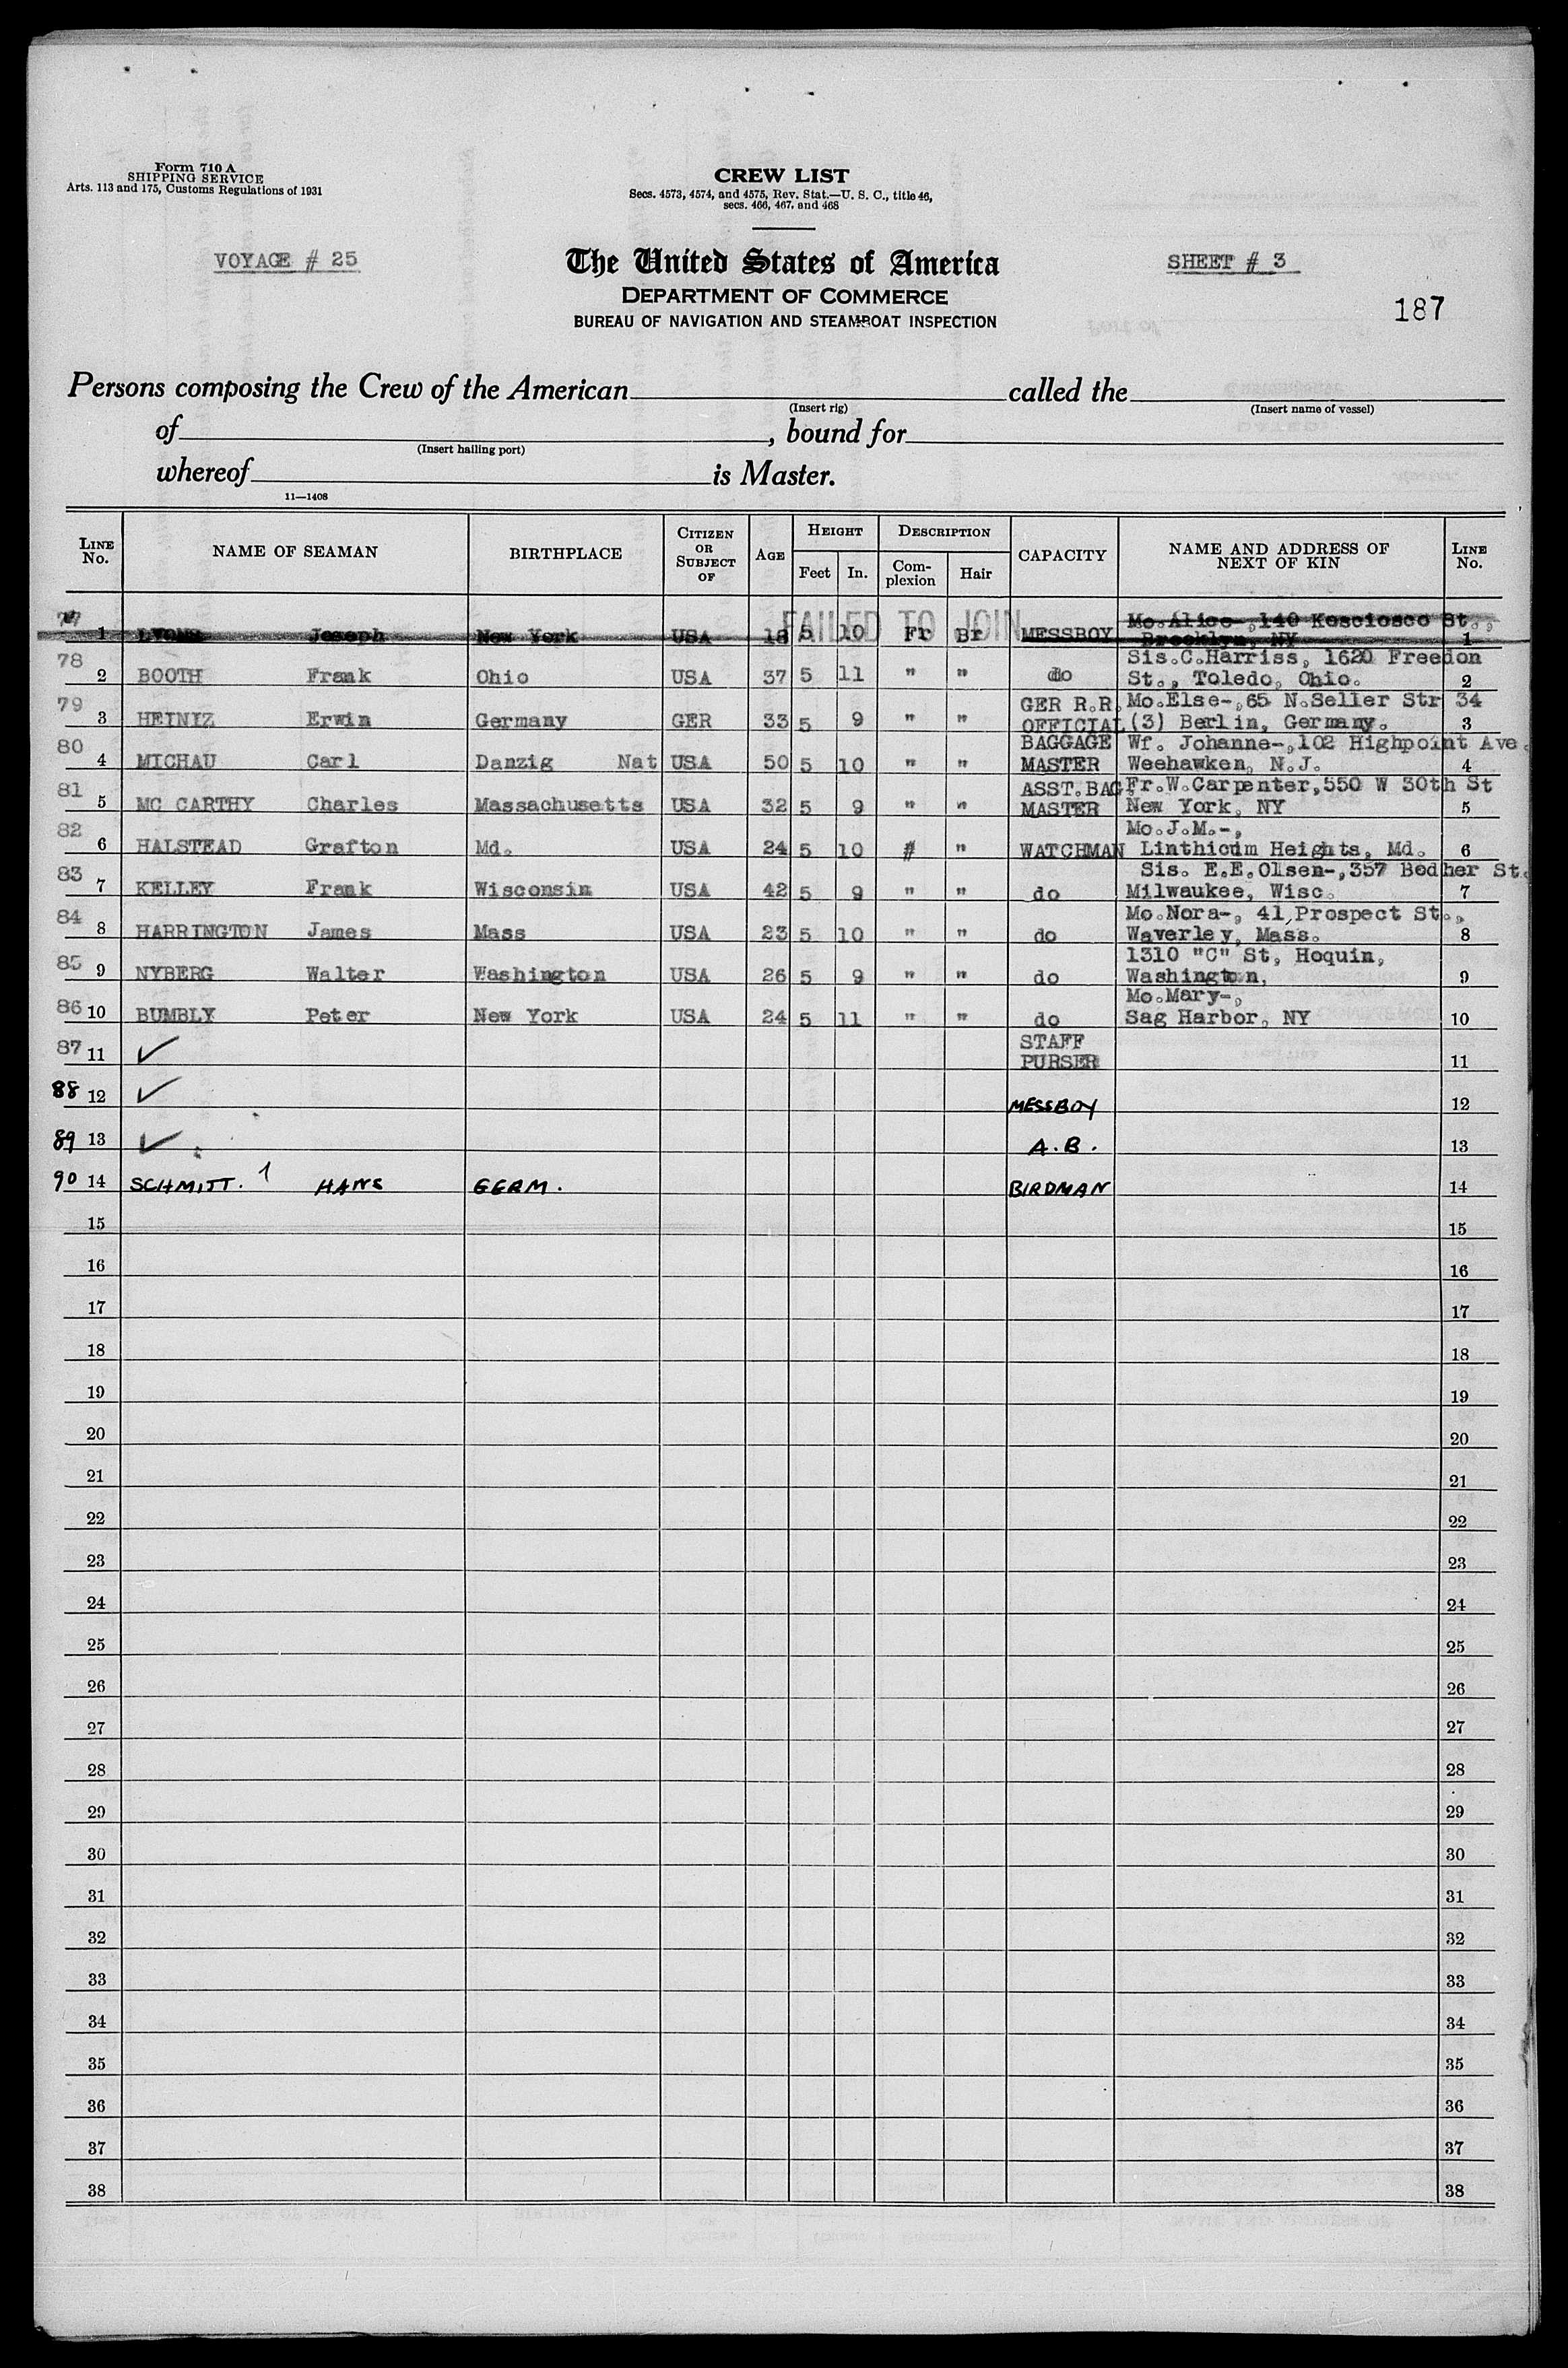 Form 710 A
SHIPPING SERVICE
Arts. 113 and 175, Customs Regulations of 1931
CREW LIST
Secs. 4573, 4574, and 4575, Rev. Stat.—U. S. C., title 46,
secs. 466, 467, and 468
VOYAGE # 25
The United States of America
SHEET # 3
DEPARTMENT OF COMMERCE
BUREAU OF NAVIGATION AND STEAMBOAT INSPECTION
187
Persons composing the Crew of the American called the
(Insert rig) (Insert name of vessel)
of , bound for
(Insert hailing port)
whereof is Master.
11—1408
LINE No. NAME OF SEAMAN BIRTHPLACE CITIZEN OR SUBJECT OF AGE HEIGHT Feet In. DESCRIPTION Complexion Hair CAPACITY NAME AND ADDRESS OF NEXT OF KIN LINE No.
FAILED TO JOIN
77 Mo.Alice-,140 Kosciosco St.,
1 LYONS Joseph New York USA 18 5 10 Fr Br MESSBOY Brooklyn, NY 1
78 Sis.C.Harriss, 1620 Freedon
2 BOOTH Frank Ohio USA 37 5 11 " " do St., Toledo, Ohio. 2
79 GER R.R. Mo.Else-,65 N.Seller Str 34
3 HEINTZ Erwin Germany GER 33 5 9 " " OFFICIAL (3) Berlin, Germany. 3
80 BAGGAGE Wf. Johanne-,102 Highpoint Ave.
4 MICHAU Carl Danzig Nat USA 50 5 10 " " MASTER Weehawken, N.J. 4
81 ASST.BAG. Fr.W.Carpenter,550 W 30th St
5 MC CARTHY Charles Massachusetts USA 32 5 9 " " MASTER New York, NY 5
82 Mo.J.M.-,
6 HALSTEAD Grafton Md. USA 24 5 10 # " WATCHMAN Linthicum Heights, Md. 6
83 Sis. E.E.Olsen-,357 Bedher St.
7 KELLEY Frank Wisconsin USA 42 5 9 " " do Milwaukee, Wisc. 7
84 Mo.Nora-, 41,Prospect St.,
8 HARRINGTON James Mass USA 23 5 10 " " do Waverley, Mass. 8
85 1310 "C" St, Hoquin,
9 NYBERG Walter Washington USA 26 5 9 " " do Washington, 9
86 Mo.Mary-,
10 BUMBLY Peter New York USA 24 5 11 " " do Sag Harbor, NY 10
87 11 ✓ STAFF
PURSER 11
88 12 ✓ MESSBOY 12
89 13 ✓ A.B. 13
90 14 SCHMITT. 1 HANS GERM. BIRDMAN 14
15 15
16 16
17 17
18 18
19 19
20 20
21 21
22 22
23 23
24 24
25 25
26 26
27 27
28 28
29 29
30 30
31 31
32 32
33 33
34 34
35 35
36 36
37 37
38 38